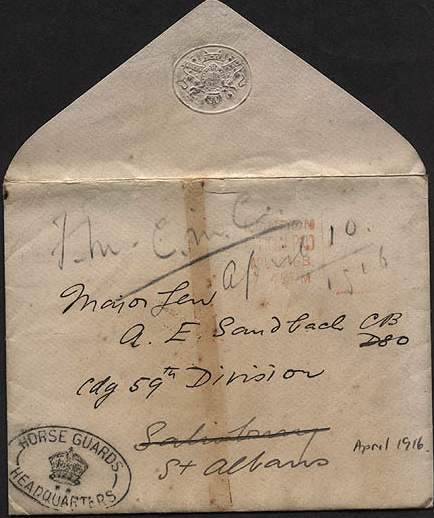 Fm. C.in.C.
April 10.
1916
Major Gen
A. E. Sandbach CB
DSO
Cdg 59th Division
Salisbury
St Albans
April 1916.
HORSE GUARDS
HEADQUARTERS